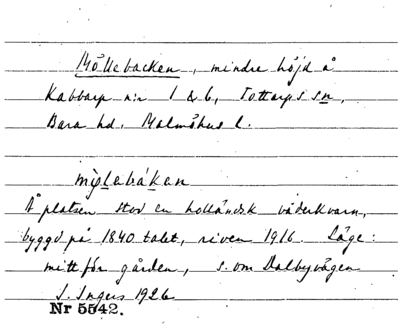 Möllebacken, mindre höjd å
Kabbarp n:r 1 & 6, Tottarps sn,
Bara hd. Malmöhus l.
Å platsen stod en holländsk väderkvarn,
byggd på 1840 talet, riven 1916. Läge:
mitt för gården, s. om Dalbyvägen
I. Ingers 1926
Nr 5542.